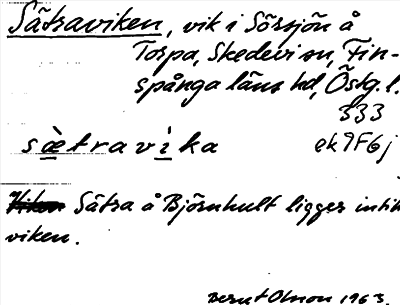 Sätraviken, vik i Sörsjön å
Torpa, Skedevi sn, Fin-
spånga läns hd, Östg. l.
333
sæ̀travìka ek9F6j
Sätra å Björnhult ligger intill
viken.
Bernt Olson 1963.